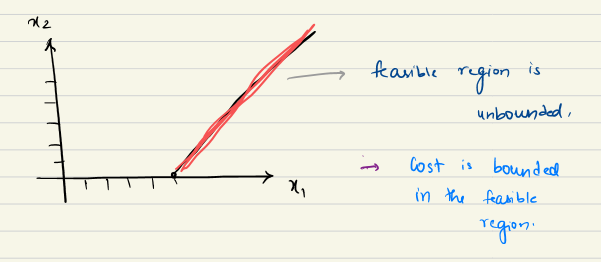 x2
feasible region is
unbounded.
→ Cost is bounded
in the feasible
region.
x1